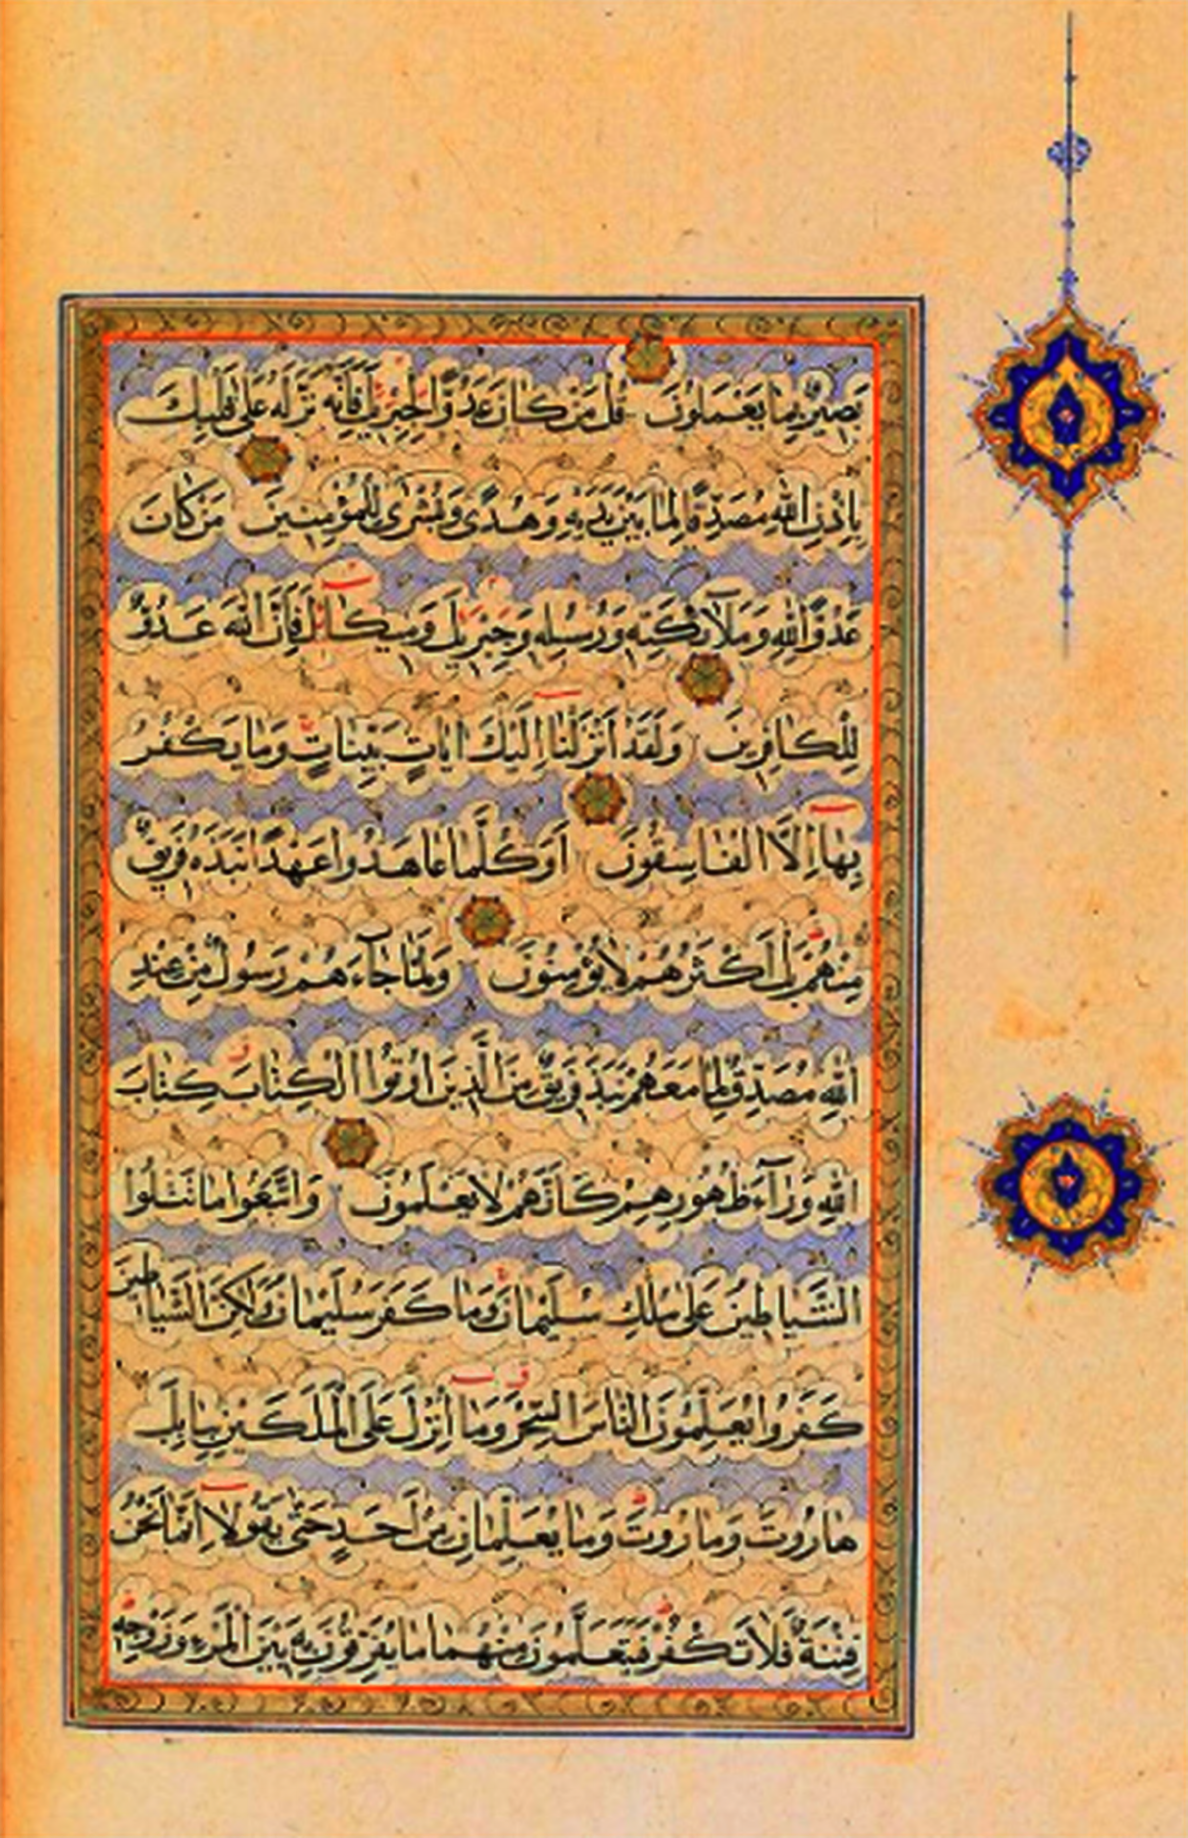 بَصِيرٌ بِمَا يَعْمَلُونَ قُلْ مَنْ كَانَ عَدُوًّا لِجِبْرِيلَ فَإِنَّهُ نَزَّلَهُ عَلَى قَلْبِكَ
بِإِذْنِ اللهِ مُصَدِّقًا لِمَا بَيْنَ يَدَيْهِ وَهُدًى وَبُشْرَى لِلْمُؤْمِنِينَ مَنْ كَانَ
عَدُوًّا لِلهِ وَمَلَآئِكَتِهِ وَرُسُلِهِ وَجِبْرِيلَ وَمِيكَائِلَ فَإِنَّ اللهَ عَدُوٌّ
لِلْكَافِرِينَ وَلَقَدْ أَنْزَلْنَا إِلَيْكَ ايَاتٍ بَيِّنَاتٍ وَمَا يَكْفُرُ
بِهَا إِلَّا الْفَاسِقُونَ أَوَكُلَّمَا عَاهَدُوا عَهْدًا نَبَذَهُ فَرِيقٌ
مِنْهُمْ بَلْ أَكْثَرُهُمْ لَا يُؤْمِنُونَ وَلَمَّا جَاءَهُمْ رَسُولٌ مِنْ عِنْدِ
اللهِ مُصَدِّقٌ لِمَا مَعَهُمْ نَبَذَ فَرِيقٌ مِنَ الَّذِينَ اوُتُوا الْكِتَابَ كِتَابَ
اللهِ وَرَآءَ ظُهُورِهِمْ كَاَنَّهُمْ لَا يَعْلَمُونَ وَاتَّبَعُوا مَا تَتْلُوا
الشَّيَاطِينُ عَلَى مُلْكِ سُلَيْمَانَ وَمَا كَفَرَ سُلَيْمَانُ وَلَكِنَّ الشَّيَاطِينَ
كَفَرُوا يُعَلِّمُونَ النَّاسَ السِّحْرَ وَمَا أُنْزِلَ عَلَى الْمَلَكَيْنِ بِبَابِلَ
هَارُوتَ وَمَارُوتَ وَمَا يُعَلِّمَانِ مِنْ أَحَدٍ حَتَّى يَقُولَا إِنَّمَا نَحْنُ
فِتْنَةٌ فَلَا تَكْفُرْ فَيَتَعَلَّمُونَ مِنْهُمَا مَا يُفَرِّقُونَ بِهِ بَيْنَ الْمَرْءِ وَزَوْجِهِ